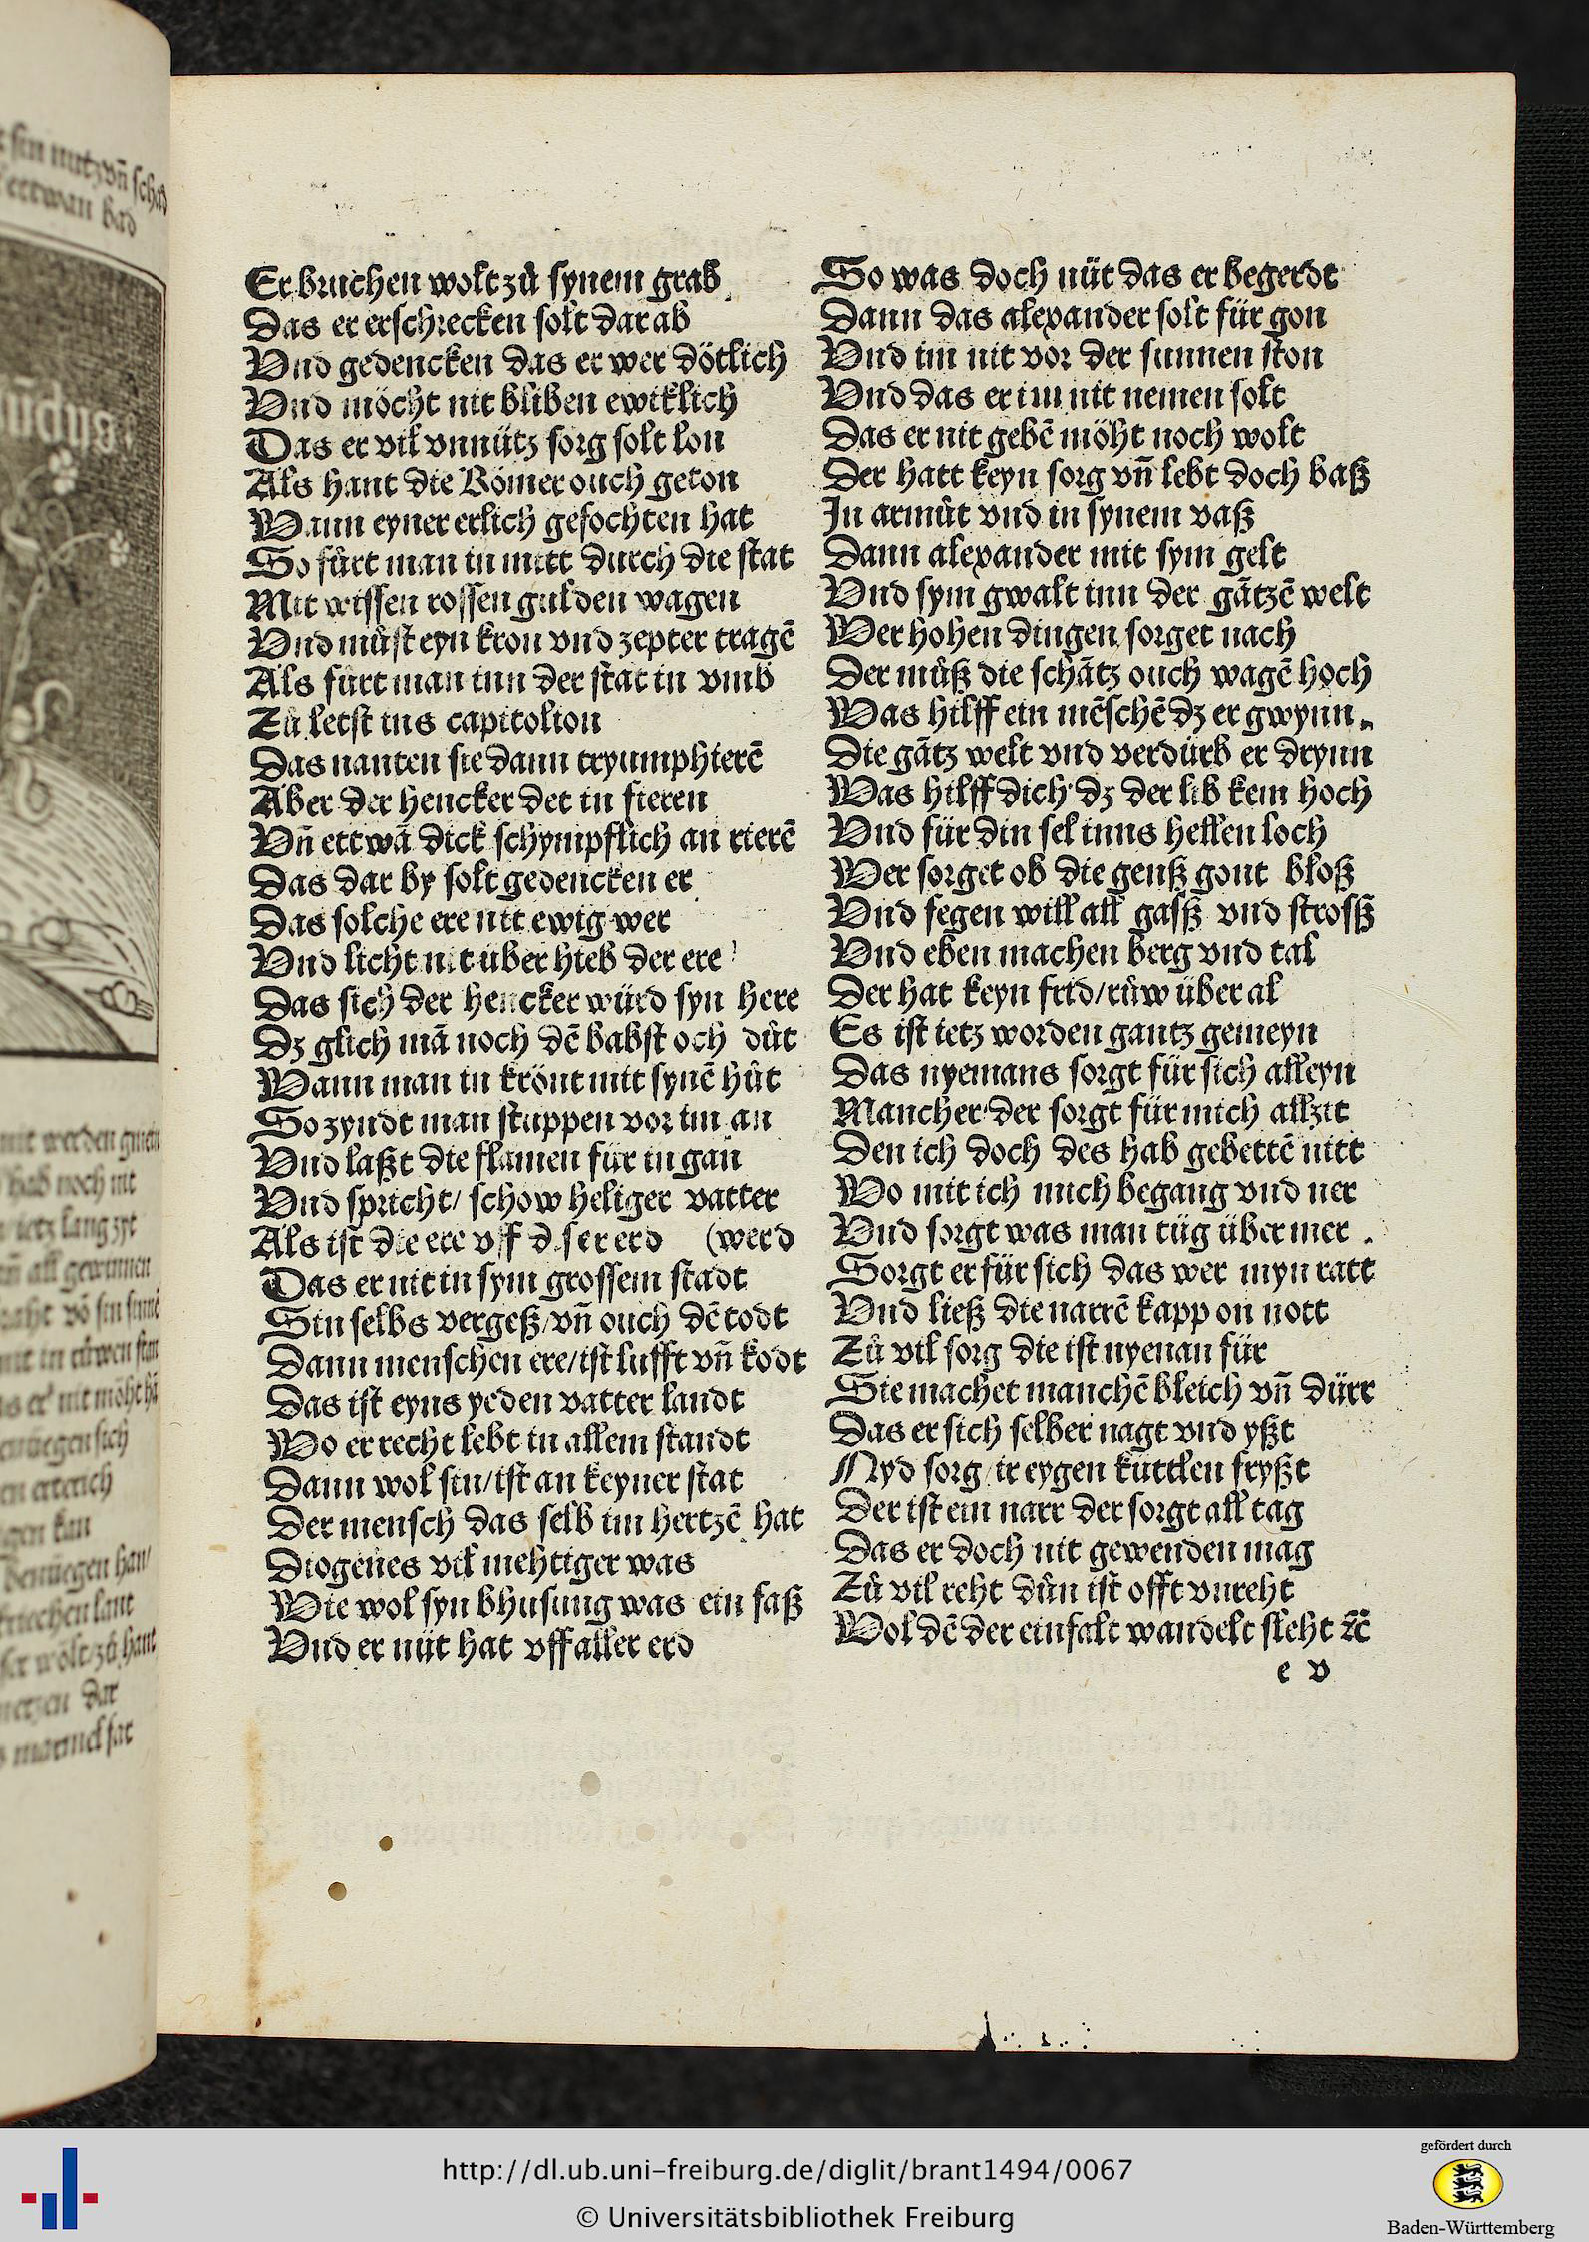 Er bruchen wolt zů synem grab
Das er erschrecken solt dar ab
Vnd gedencken das er wer dötlich
Vnd möcht nit bliben ewiklich
Das er vil vnnütz sorg solt lon
Als hant die Römer ouch geton
Wann eyner erlich gefochten hat
So fůrt man in mitt durch die stat
Mit wissen rossen gulden wagen
Vnd můst eyn kron vnd zepter tragē
Als fůrt man inn der stat in vmb
Zů letst ins capitolion
Das nanten sie dann tryumphierē
Aber der hencker det in fieren
Vn̄ ettwā dick schympflich an rierē
Das dar by solt gedencken er
Das solche ere nit ewig wer
Vnd licht nit über hieb der ere
Das sich der hencker würd syn here
Dz glich mā noch dē babst och důt
Wann man in krönt mit synē hůt
So zyndt man stuppen vor im an
Vnd laßt die flamen für in gan
Vnd spricht/ schow heliger vatter
Als ist die ere vff diser erd (werd
Das er nit in sym grossem stadt
Sin selbs vergeß/vn̄ ouch dē todt
Dann menschen ere/ist lufft vn̄ kodt
Das ist eyns yeden vatter landt
Wo er recht lebt in allem standt
Dann wol sin/ist an keyner stat
Der mensch das selb im hertzē hat
Diogenes vil mehtiger was
Wie wol syn bhusung was ein faß
Vnd er nüt hat vff aller erd
So was doch nüt das er begerdt
Dann das alexander solt für gon
Vnd im nit vor der sunnen ston
Vnd das er im nit nemen solt
Das er nit gebē möht noch wolt
Der hatt keyn sorg vn̄ lebt doch baß
In armůt vnd in synem vaß
Dann alexander mit sym gelt
Vnd sym gwalt inn der gātzē welt
Wer hohen dingen sorget nach
Der můß die schātz ouch wagē hoch
Was hilff ein mēschē dz er gwynn
Die gātz welt vnd verdürb er drynn
Was hilff dich dz der lib kem hoch
Vnd für din sel inns hellen loch
Wer sorget ob die genß gont bloß
Vnd fegen will all gasß vnd strosß
Vnd eben machen berg vnd tal
Der hat keyn frid/růw über al
Es ist ietz worden gantz gemeyn
Das nyemans sorgt für sich alleyn
Mancher der sorgt für mich allzit
Den ich doch des hab gebettē nitt
Wo mit ich mich begang vnd ner
Vnd sorgt was man tüg über mer
Sorgt er für sich das wer myn ratt
Vnd ließ die narrē kapp on nott
Zů vil sorg die ist nyenan für
Sie machet manchē bleich vn̄ dürr
Das er sich selber nagt vnd yßt
Nyd sorg/ir eygen kuttlen fryßt
Der ist ein narr der sorgt all tag
Das er doch nit gewenden mag
Zů vil reht důn ist offt vnreht
Wol dē der einfalt wandelt sleht ⁊c̄
e v
http://dl.ub.uni-freiburg.de/diglit/brant1494/0067
© Universitätsbibliothek Freiburg
gefördert durch
Baden-Württemberg